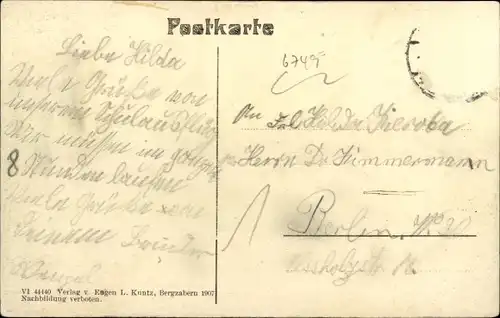 Postkarte
6749
Liebe Hilda
Viele Grüße von
unserem Schulausflug
Wir müssen im ganzen
8 Stunden laufen
Viele Grüße von
Deinem Bruder
An Frl. Hilda
Herrn Dr. Zimmermann
Berlin. W. 30
VI 44440 Verlag v. Eugen L. Kuntz, Bergzabern 1907
Nachbildung verboten.